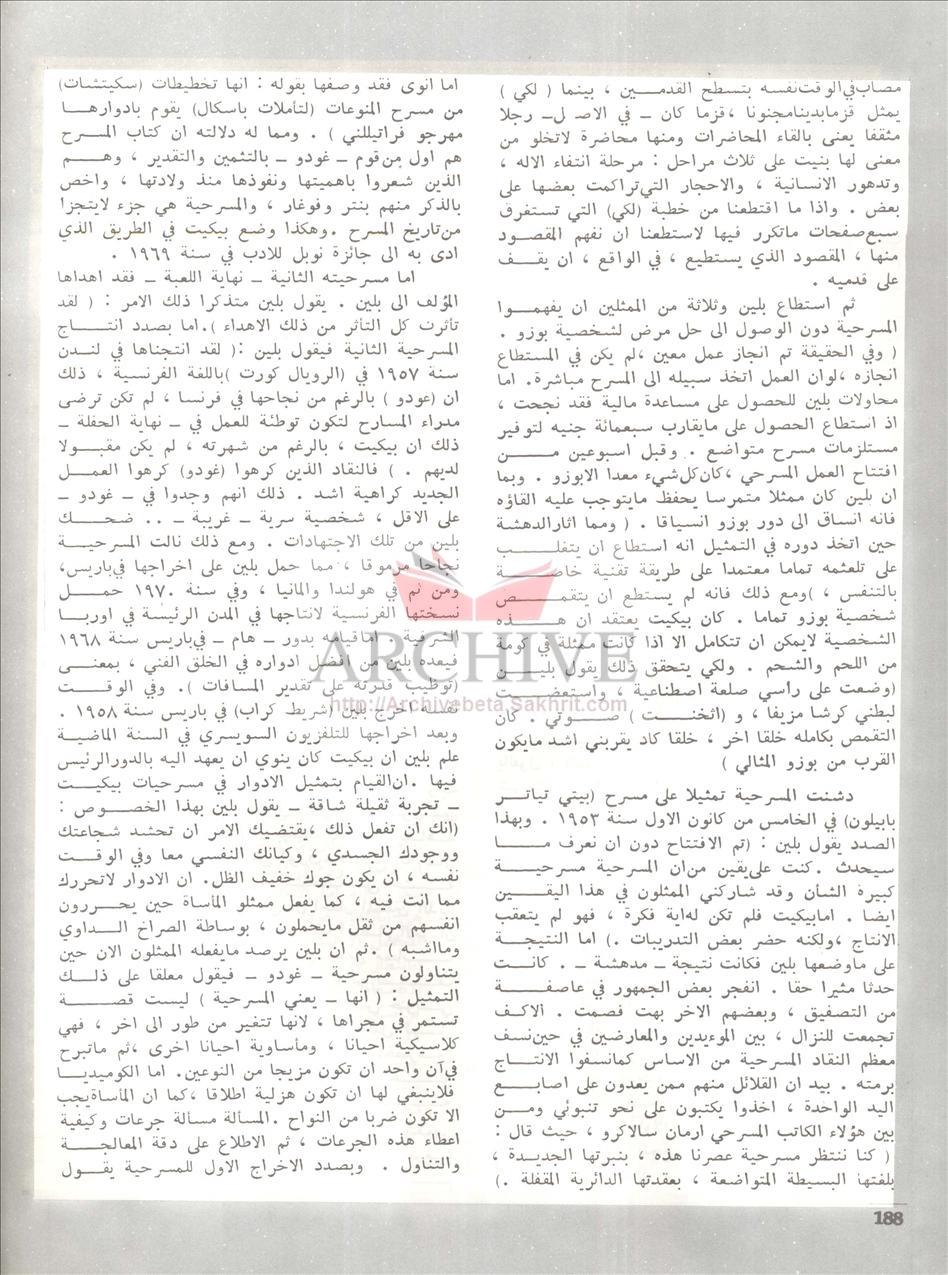 مصاب في الوقت نفسه بتسطح القدمـــين ، بينما ( لكي )
يمثل قزما بدينا مجنونا ، قزما كان ــ في الاصل ــ رجلا
مثقفا يعنى بالقاء المحاضرات ومنها محاضرة لاتخلو من
معنى لها بنيت على ثلاث مراحل : مرحلة انتفاء الاله ،
وتدهور الانسانية ، والاحجار التي تراكمت بعضها على
بعض . واذا ما اقتطعنا من خطبة (لكي) التي تستغرق
سبع صفحات ماتكرر فيها لاستطعنا ان نفهم المقصود
منها ، المقصود الذي يستطيع ، في الواقع ، ان يقـــف
على قدميه .
ثم استطاع بلين وثلاثة من الممثلين ان يفهمـــوا
المسرحية دون الوصول الى حل مرض لشخصية بوزو .
( وفي الحقيقة تم انجاز عمل معين ، لم يكن في المستطاع
انجازه ، لو ان العمل اتخذ سبيله الى المسرح مباشرة. اما
محاولات بلين للحصول على مساعدة مالية فقد نجحت ،
اذ استطاع الحصول على مايقارب سبعمائة جنيه لتوفير
مستلزمات مسرح متواضع . وقبل اسبوعين مــــن
افتتاح العمل المسرحي ، كان كل شيء معدا الا بوزو . وبما
ان بلين كان ممثلا متمرسا يحفظ مايتوجب عليه القاؤه
فانه انساق الى دور بوزو انسياقا . ( ومما اثار الدهشة
حين اتخذ دوره في التمثيل انه استطاع ان يتغلـــب
على تلعثمه تماما معتمدا على طريقة تقنية خاصـــة
بالتنفس ، ) ومع ذلك فانه لم يستطع ان يتقمـــص
شخصية بوزو تماما . كان بيكيت يعتقد ان هـــذه
الشخصية لايمكن ان تتكامل الا اذا كانت ممثلة في كومة
من اللحم والشحم . ولكي يتحقق ذلك يقول بلـــين
(وضعت على راسي صلعة اصطناعية ، واستعضـــت
لبطني كرشا مزيفا ، و (اثخنـــت ) صـــوتي . كان
التقمص بكامله خلقا اخر ، خلقا كاد يقربني اشد مايكون
القرب من بوزو المثالي )
دشنت المسرحية تمثيلا على مسرح (بيتي تياتـــر
بابيلون) في الخامس من كانون الاول سنة ١٩٥٣ . وبهذا
الصدد يقول بلين : (تم الافتتاح دون ان نعرف مـــا
سيحدث . كنت على يقين من ان المسرحية مسرحيـــة
كبيرة الشأن وقد شاركني الممثلون في هذا اليقـــين
ايضا . اما بيكيت فلم تكن له اية فكرة ، فهو لم يتعقب
الانتاج ، ولكنه حضر بعض التدريبات .) اما النتيجـــة
على ماوضعها بلين فكانت نتيجة ــ مدهشة ــ . كانـــت
حدثا مثيرا حقا . انفجر بعض الجمهور في عاصفـــة
من التصفيق ، وبعضهم الاخر بهت فصمت . الاكـــف
تجمعت للنزال ، بين المؤيدين والمعارضين في حين نسف
معظم النقاد المسرحية من الاساس كما نسفوا الانتـــاج
برمته . بيد ان القلائل منهم ممن يعدون على اصابـــع
اليد الواحدة ، اخذوا يكتبون على نحو تنبوئي ومـــن
بين هؤلاء الكاتب المسرحي ارمان سالاكرو ، حيث قال :
( كنا ننتظر مسرحية عصرنا هذه ، بنبرتها الجديـــدة ،
بلغتها البسيطة المتواضعة ، بعقدتها الدائرية المقفلة .)
اما انوى فقد وصفها بقوله : انها تخطيطات (سكيتشات)
من مسرح المنوعات (لتأملات باسكال) يقوم بادوارهـــا
مهرجو فراتيللني ) . ومما له دلالته ان كتاب المسرح
هم اول من قوم ــ غودو ــ بالتثمين والتقدير ، وهـــم
الذين شعروا باهميتها ونفوذها منذ ولادتها ، واخص
بالذكر منهم بنتر وفوغار ، والمسرحية هي جزء لايتجزا
من تاريخ المسرح . وهكذا وضع بيكيت في الطريق الذي
ادى به الى جائزة نوبل للادب في سنة ١٩٦٩ .
اما مسرحيته الثانية ــ نهاية اللعبة ــ فقد اهداها
المؤلف الى بلين . يقول بلين متذكرا ذلك الامر : ( لقد
تأثرت كل التأثر من ذلك الاهداء ).اما بصدد انتـــاج
المسرحية الثانية فيقول بلين :( لقد انتجناها في لنـــدن
سنة ١٩٥٧ في (الرويال كورت ) باللغة الفرنسية ، ذلك
ان (غودو ) بالرغم من نجاحها في فرنسا ، لم تكن ترضى
مدراء المسارح لتكون توطئة للعمل في ــ نهاية الحفلة ــ
ذلك ان بيكيت ، بالرغم من شهرته ، لم يكن مقبـــولا
لديهم . ) فالنقاد الذين كرهوا (غودو) كرهوا العمـــل
الجديد كراهية اشد . ذلك انهم وجدوا في ــ غودو ــ
على الاقل ، شخصية سرية ــ غريبة ــ .. ضحـــك
بلين من تلك الاجتهادات . ومع ذلك نالت المسرحيـــة
نجاحا مرموقا ، مما حمل بلين على اخراجها في باريس،
ومن ثم في هولندا والمانيا ، وفي سنة ١٩٧٠ حمـــل
نسختها الفرنسية لانتاجها في المدن الرئيسة في اوربـا
الشرقية . اما قيامه بدور ــ هام ــ في باريس سنة ١٩٦٨
فيعده بلين من افضل ادواره في الخلق الفني ، بمعنـى
(توظيب قدرته على تقدير المسافات ). وفي الوقـــت
نفسه اخرج بلين (شريط كراب) في باريس سنة ١٩٥٨ .
وبعد اخراجها للتلفزيون السويسري في السنة الماضية
علم بلين ان بيكيت كان ينوي ان يعهد اليه بالدور الرئيس
فيها . ان القيام بتمثيل الادوار في مسرحيات بيكيـــت
ــ تجربة ثقيلة شاقة ــ يقول بلين بهذا الخصـــوص :
(انك ان تفعل ذلك ، يقتضيك الامر ان تحشد شجاعتك
ووجودك الجسدي ، وكيانك النفسي معا وفي الوقـــت
نفسه ، ان يكون جوك خفيف الظل. ان الادوار لاتحررك
مما انت فيه ، كما يفعل ممثلو المأساة حين يحـــررون
انفسهم من ثقل مايحملون ، بوساطة الصراخ الـــداوي
وما اشبه ) . ثم ان بلين يرصد مايفعله الممثلون الان حين
يتناولون مسرحية ــ غودو ــ فيقول معلقا على ذلـــك
التمثيل : ( انها ــ يعني المسرحية ) ليست قصـــة
تستمر في مجراها ، لانها تتغير من طور الى اخر ، فهي
كلاسيكية احيانا ، ومأساوية احيانا اخرى ، ثم ماتبرح
في آن واحد ان تكون مزيجا من النوعين. اما الكوميديـا
فلا ينبغي لها ان تكون هزلية اطلاقا ، كما ان المأساة يجب
الا تكون ضربا من النواح . المسألة مسألة جرعات وكيفية
اعطاء هذه الجرعات ، ثم الاطلاع على دقة المعالجـــة
والتناول . وبصدد الاخراج الاول للمسرحية يقـــول
ARCHIVE
http://Archivebeta.Sakhrit.com
188